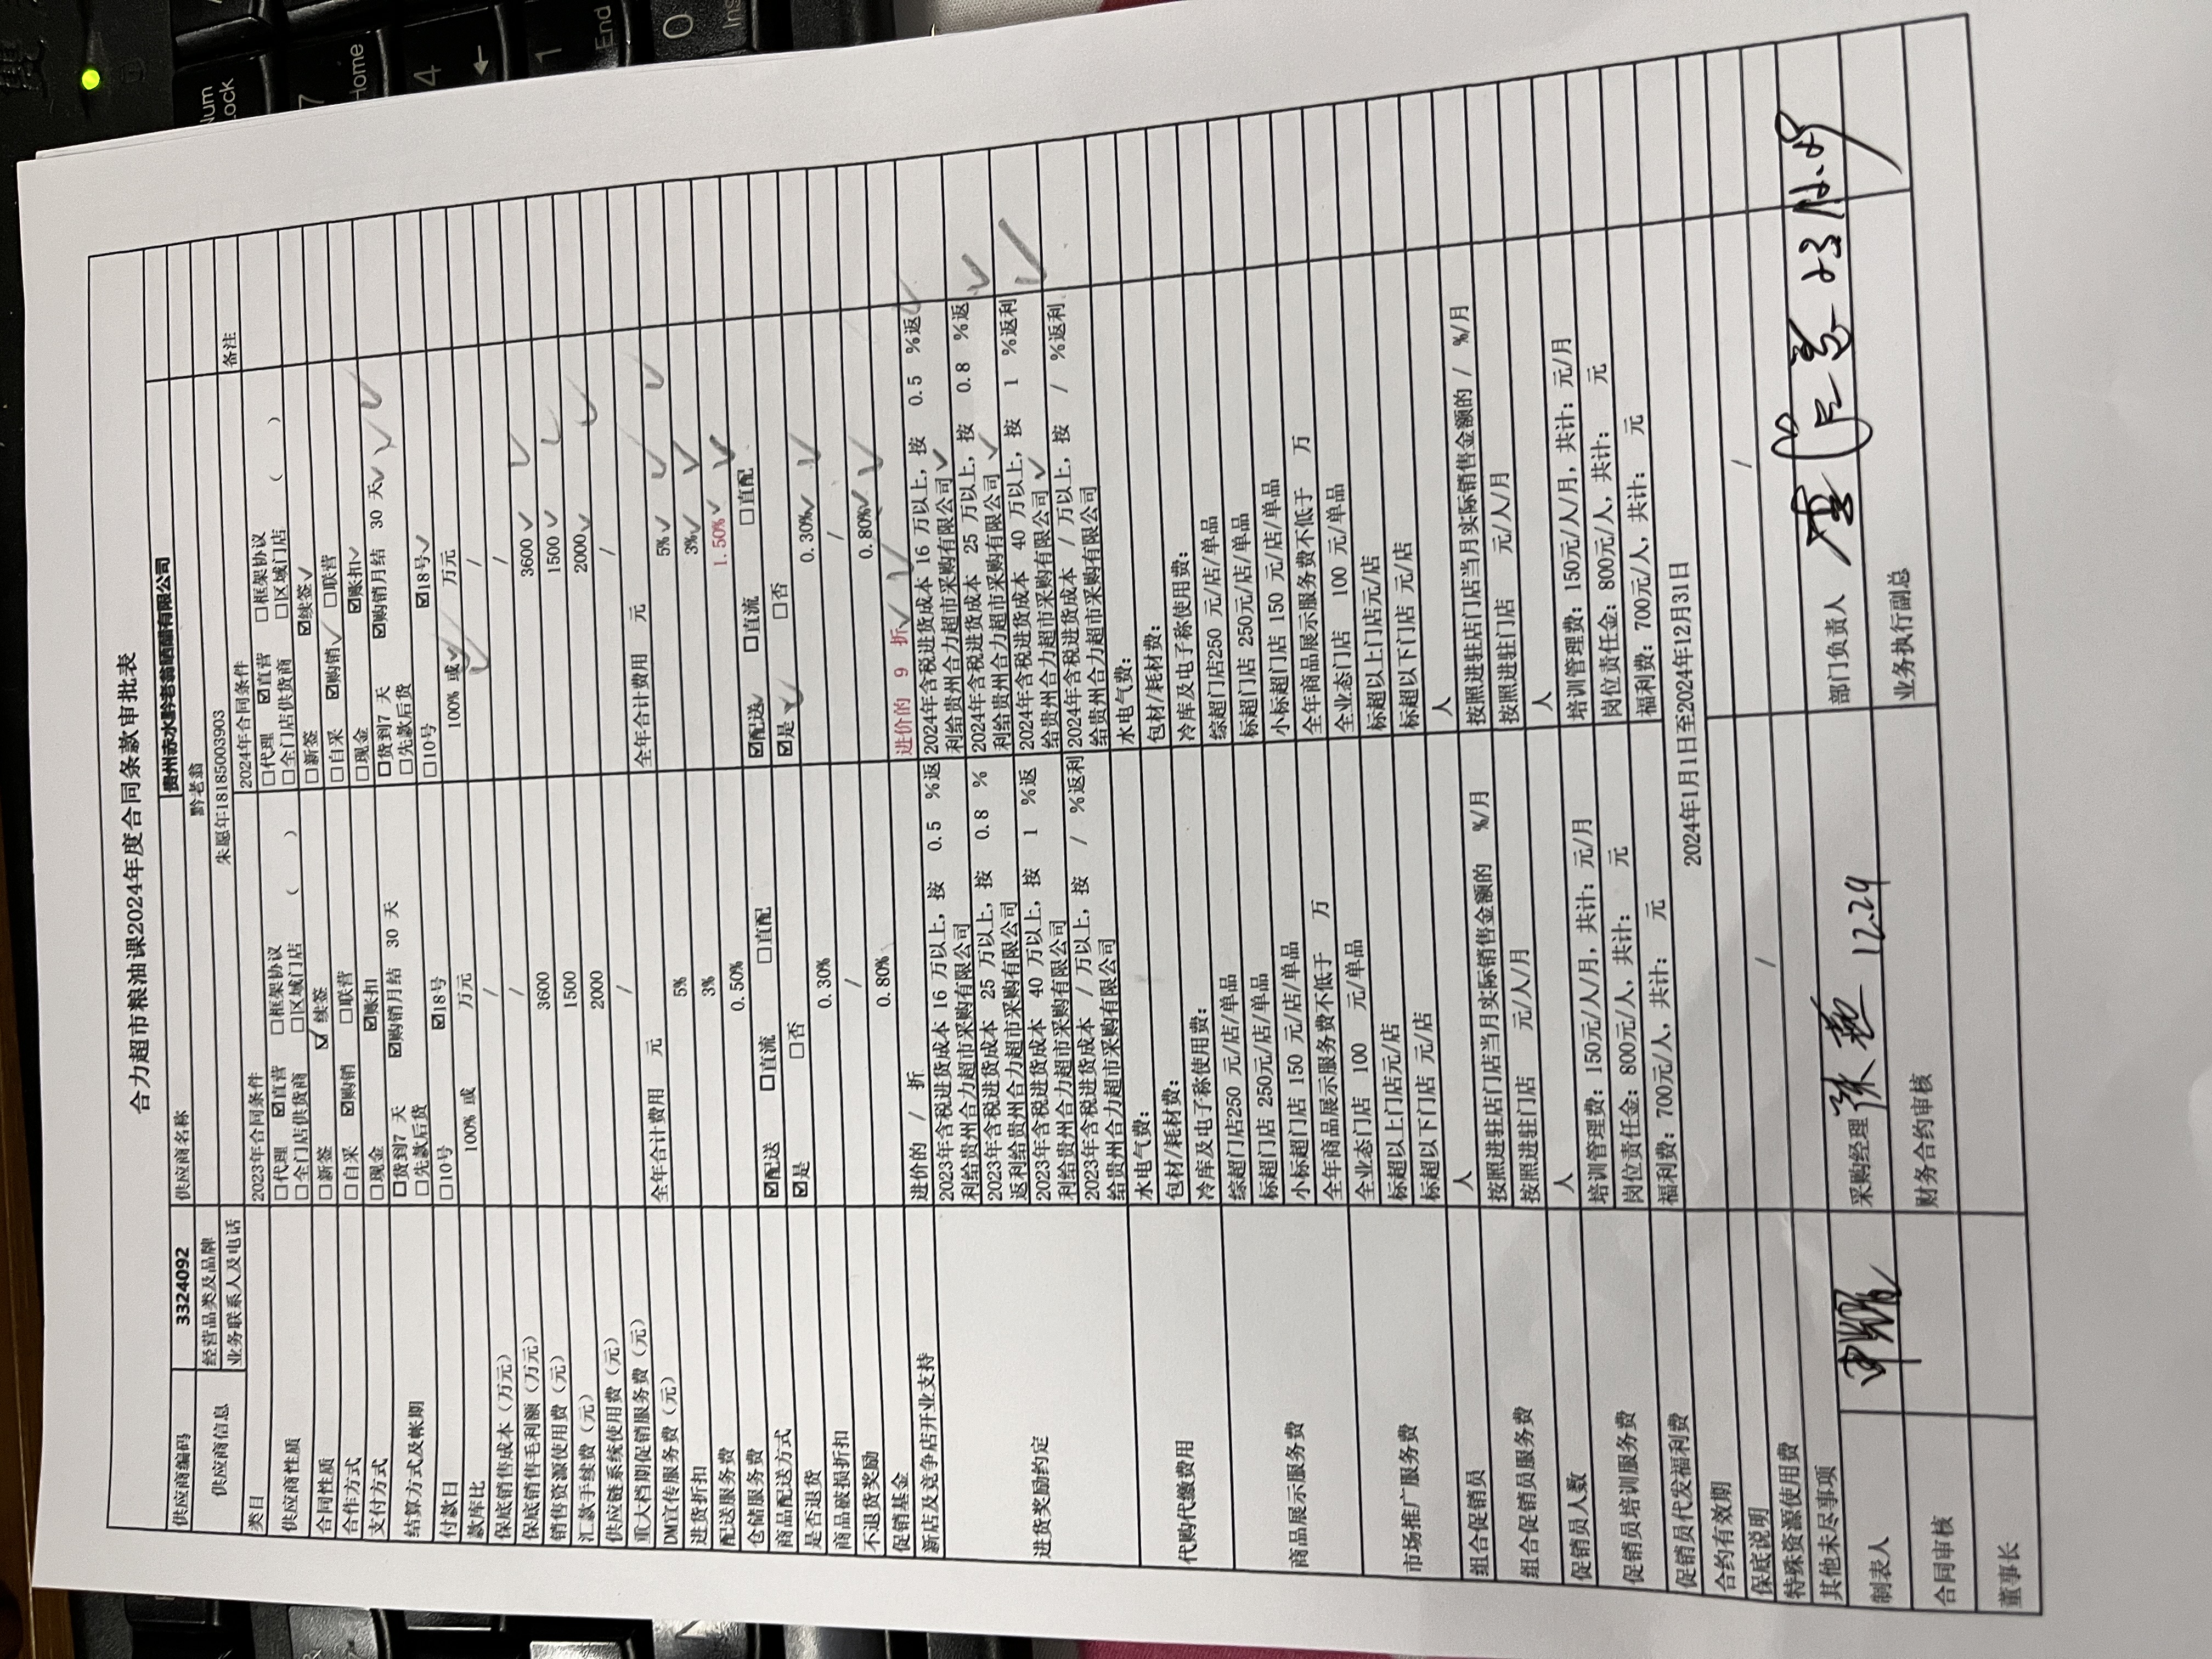 合力超市粮油课2024年度合同条款审批表
供应商编码 3324092 供应商名称 贵州赤水黔老翁晒醋有限公司
供应商信息 经营品类及品牌 黔老翁
业务联系人及电话 朱愿年18185003903
类目 2023年合同条件 2024年合同条件 备注
供应商性质 □代理 ☑直营 □框架协议 □代理 ☑直营 □框架协议
□全门店供货商 □区域门店 ( ) □全门店供货商 □区域门店 ( )
合同性质 □新签 ☑续签 □新签 ☑续签
合作方式 □自采 ☑购销 □联营 □自采 ☑购销 □联营
支付方式 □现金 ☑账扣 □现金 ☑账扣
结算方式及帐期 □货到7 天 ☑购销月结 30 天 □货到7 天 ☑购销月结 30 天
□先款后货 □先款后货
付款日 □10号 ☑18号 □10号 ☑18号
款库比 100% 或 万元 100% 或 万元
保底销售成本（万元） / /
保底销售毛利额（万元） / /
销售资源使用费（元） 3600 3600
汇款手续费（元） 1500 1500
供应链系统使用费（元） 2000 2000
重大档期促销服务费（元） / /
DM宣传服务费（元） 全年合计费用 元 全年合计费用 元
进货折扣 5% 5%
配送服务费 3% 3%
仓储服务费 0.50% 1.50%
商品配送方式 ☑配送 □直流 □直配 ☑配送 □直流 □直配
是否退货 ☑是 □否 ☑是 □否
商品破损折扣 0.30% 0.30%
不退货奖励 / /
促销基金 0.80% 0.80%
新店及竞争店开业支持 进价的 / 折 进价的 9 折
进货奖励约定 2023年含税进货成本 16 万以上，按 0.5 %返 2024年含税进货成本 16 万以上，按 0.5 %返
利给贵州合力超市采购有限公司 利给贵州合力超市采购有限公司
2023年含税进货成本 25 万以上，按 0.8 % 2024年含税进货成本 25 万以上，按 0.8 %返
返利给贵州合力超市采购有限公司 利给贵州合力超市采购有限公司
2023年含税进货成本 40 万以上，按 1 %返 2024年含税进货成本 40 万以上，按 1 %返利
利给贵州合力超市采购有限公司 给贵州合力超市采购有限公司
2023年含税进货成本 / 万以上，按 / %返利 2024年含税进货成本 / 万以上，按 / %返利
给贵州合力超市采购有限公司 给贵州合力超市采购有限公司
代购代缴费用 水电气费： 水电气费：
包材/耗材费： 包材/耗材费：
冷库及电子称使用费： 冷库及电子称使用费：
商品展示服务费 综超门店250 元/店/单品 综超门店250 元/店/单品
标超门店 250元/店/单品 标超门店 250元/店/单品
小标超门店 150 元/店/单品 小标超门店 150 元/店/单品
全年商品展示服务费不低于 万 全年商品展示服务费不低于 万
市场推广服务费 全业态门店 100 元/单品 全业态门店 100 元/单品
标超以上门店元/店 标超以上门店元/店
标超以下门店 元/店 标超以下门店 元/店
组合促销员 人 人
组合促销员服务费 按照进驻店门店当月实际销售金额的 %/月 按照进驻店门店当月实际销售金额的 / %/月
按照进驻门店 元/人/月 按照进驻门店 元/人/月
促销员人数 人 人
促销员培训服务费 培训管理费：150元/人/月，共计：元/月 培训管理费：150元/人/月，共计：元/月
岗位责任金：800元/人，共计： 元 岗位责任金：800元/人，共计： 元
促销员代发福利费 福利费：700元/人，共计： 元 福利费：700元/人，共计： 元
合约有效期 2024年1月1日至2024年12月31日
保底说明
特殊资源使用费 / /
其他未尽事项
制表人 采购经理 12.29 部门负责人 23.12.29
合同审核 财务合约审核 业务执行副总
董事长
Num
Lock
7
Home
4
←
1
End
0
Ins